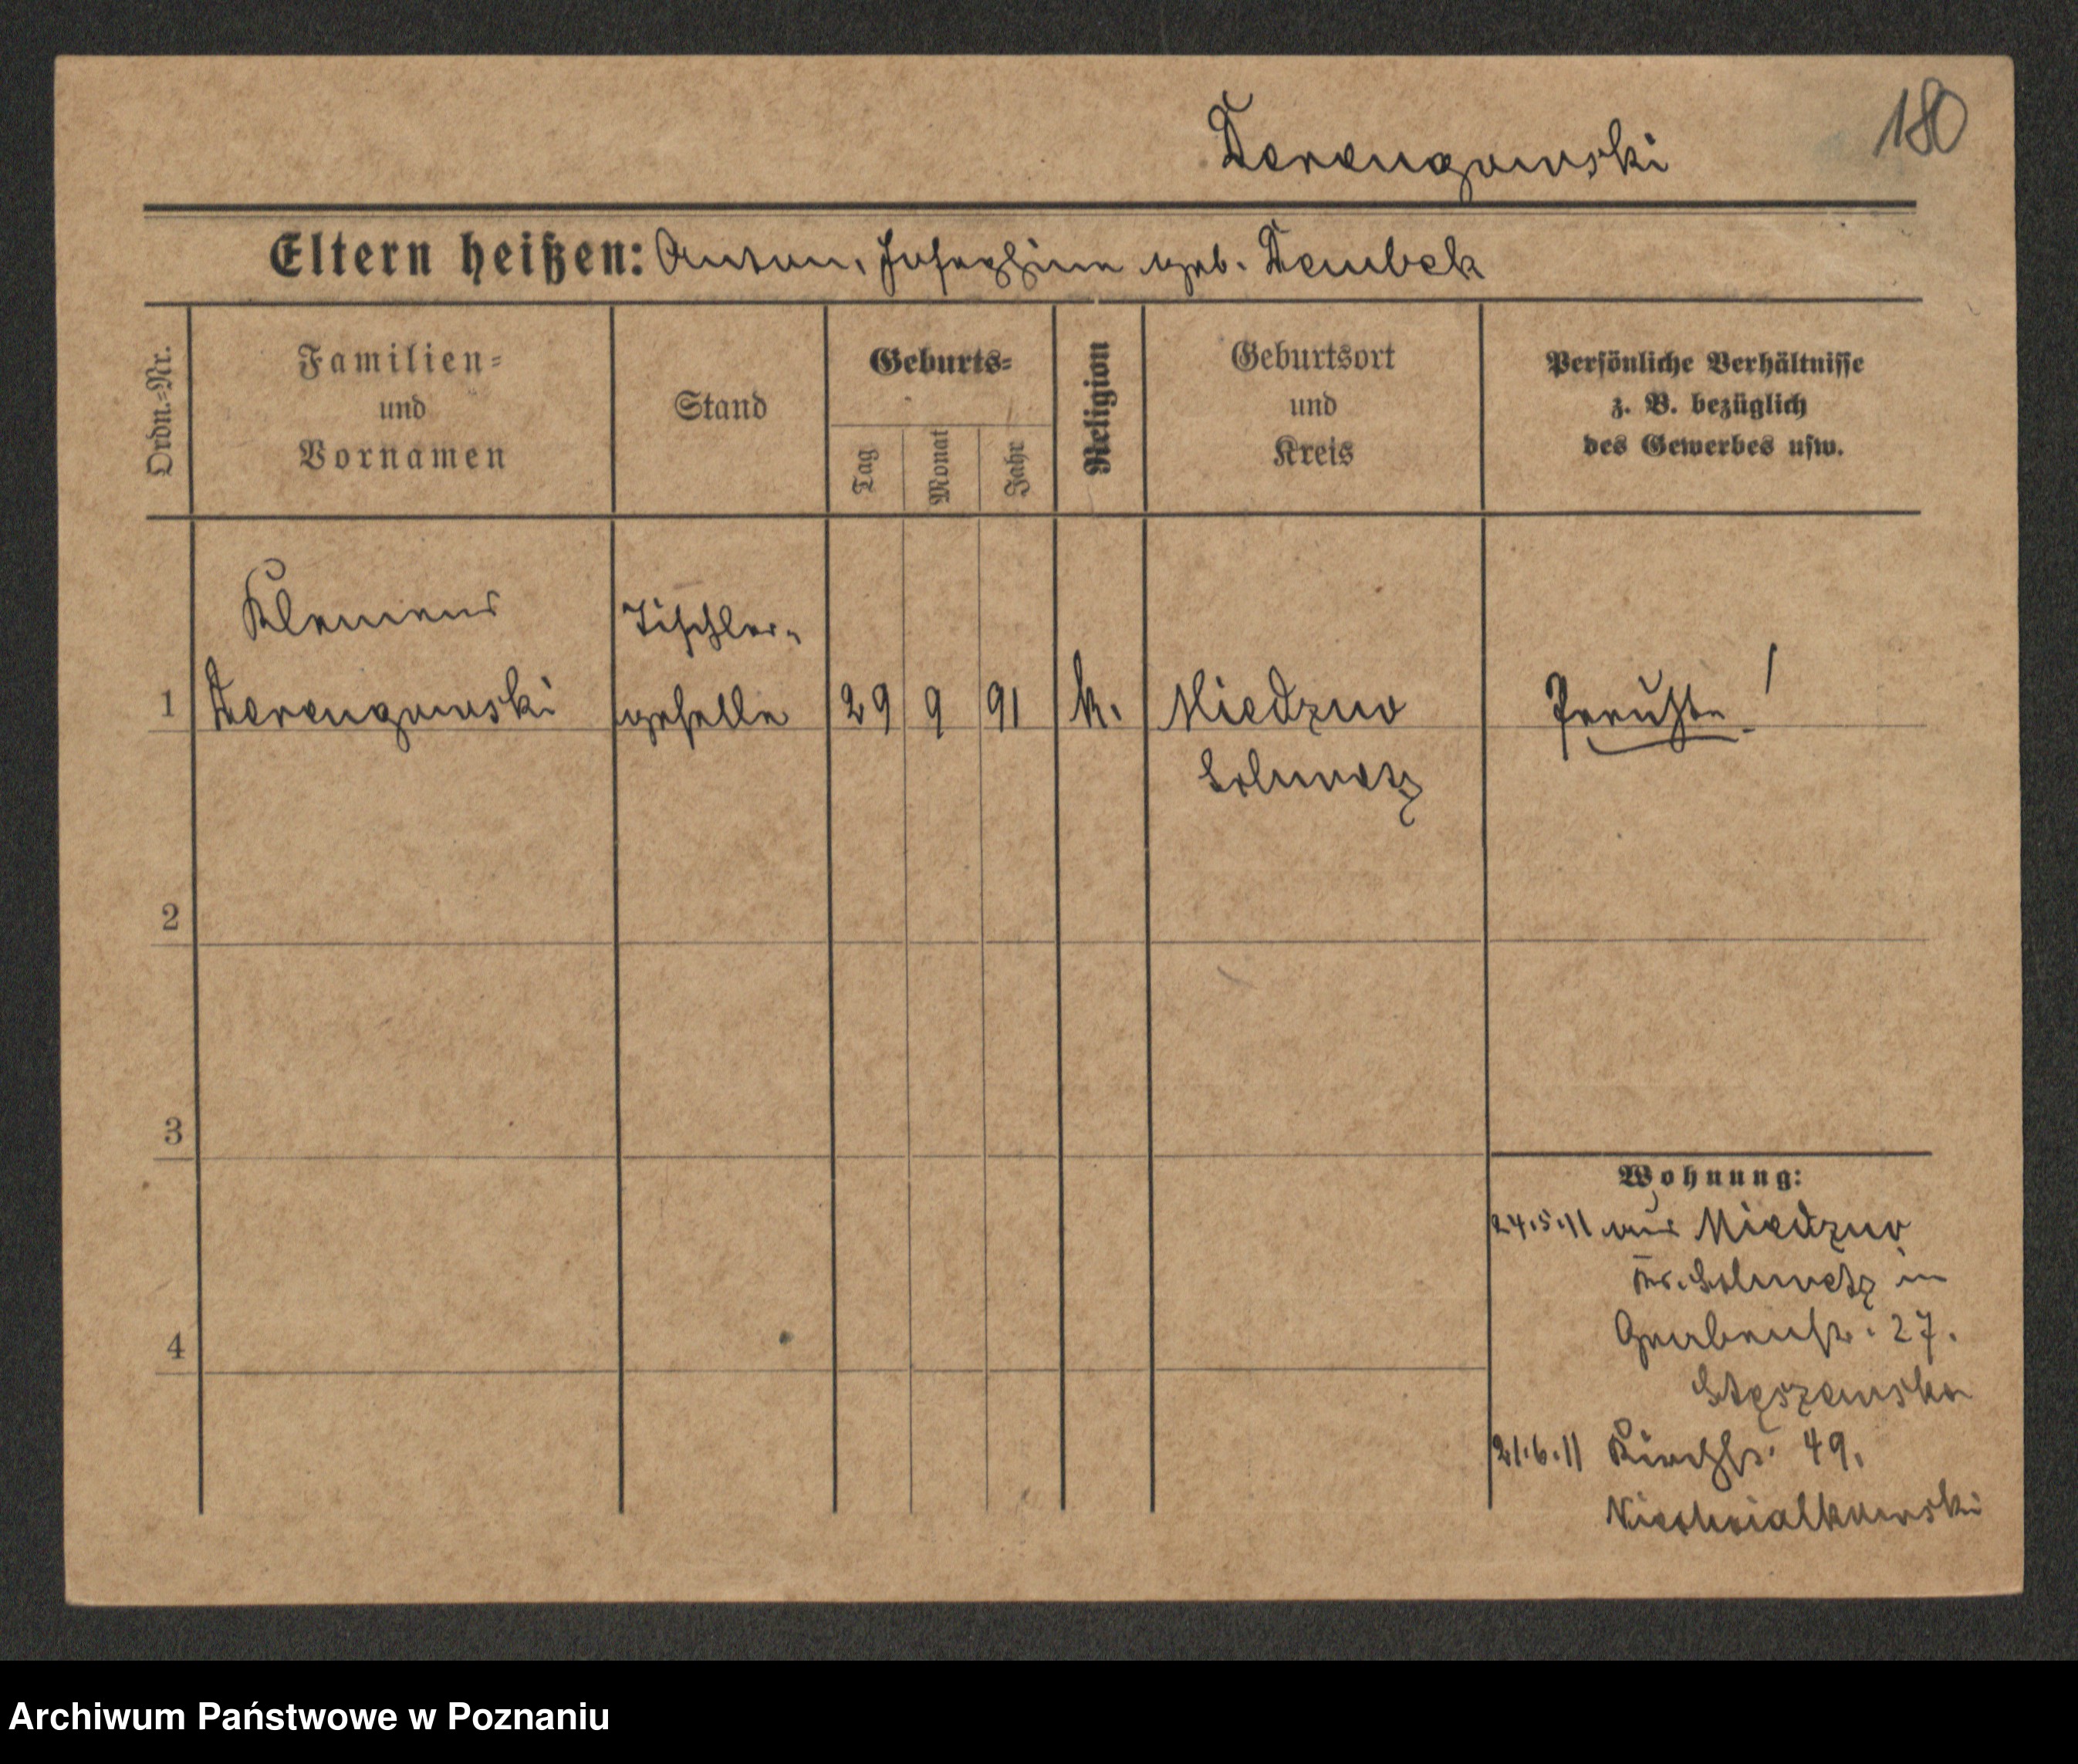 180
Derengowski
Eltern heißen: Anton, Josephine geb. Dembek
Ordn.-Nr.
Familien-
und
Vornamen
Stand
Geburts-
Tag
Monat
Jahr
Religion
Geburtsort
und
Kreis
Persönliche Verhältnisse
z. B. bezüglich
des Gewerbes usw.
Klemens
Tischler-
1 Derengowski geselle 29 9 91 k. Miedzno Preuße!
Schwetz
2
3
4
Wohnung:
24.5.11 aus Miedzno
Kr. Schwetz in
Grabenstr. 27.
21.6.11 Kirchstr. 49.
Niedwialkowski
Archiwum Państwowe w Poznaniu